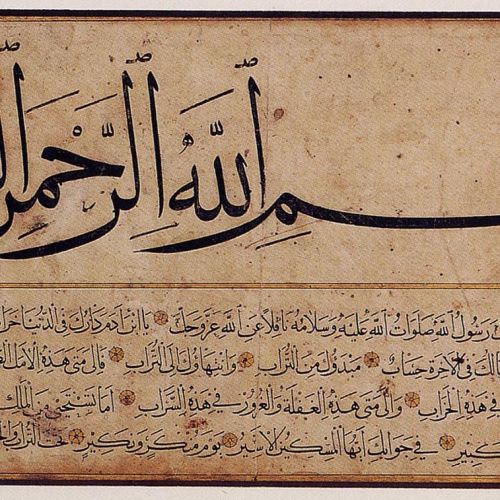 ـسم الله الرحمن الـ
رسول الله صلوات الله عليه وسلامه ناقلا عن الله عز وجل يا ابن ادم دارك في الدنيا خراب
في الاخرة حساب مبدؤك من التراب وانتهاؤك الى التراب فالى متى هذه الامل
في هذه الخراب والى متى هذه الغفلة والغرور في هذه السراب اما تستحيي من الملك
في جوابك ايها المسكين الاسير يوم منكر ونكير تحت التراب